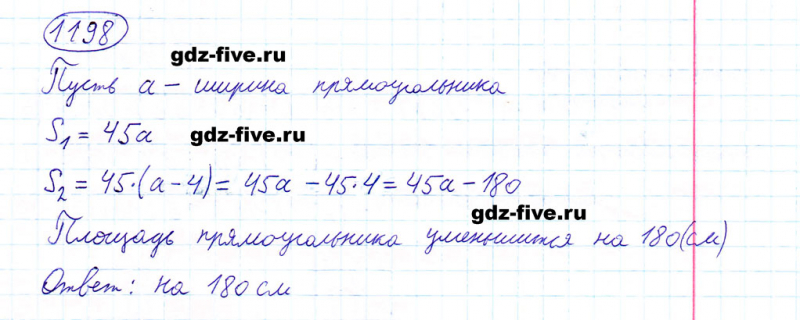 1198
gdz-five.ru
Пусть a – ширина прямоугольника
S₁ = 45a gdz-five.ru
S₂ = 45·(a-4) = 45a - 45·4 = 45a - 180
gdz-five.ru
Площадь прямоугольника уменьшится на 180(см)
Ответ: на 180 см